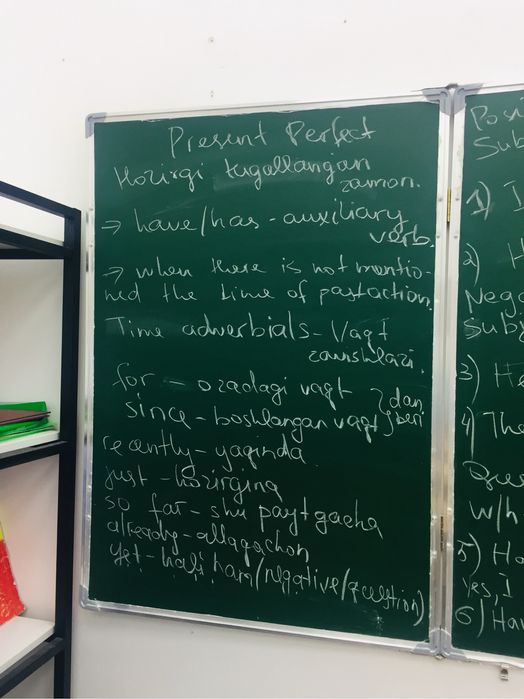 Present Perfect
Hozirgi tugallangan
zamon.
→ have/has - auxiliary
verb.
→ when there is not mentio-
ned the time of past action.
Time adverbials - Vaqt
for - oradagi vaqt } dan
since - boshlangan vaqt } beri
recently - yaqinda
just - hozirgina
so far - shu paytgacha
already - allaqachon
yet - hali ham (negative/question)
Posi
Sub
1) I
2) H
Nega
Subj
3) He
4) The
Que
w/h
5) Ha
Yes, I
6) Hav